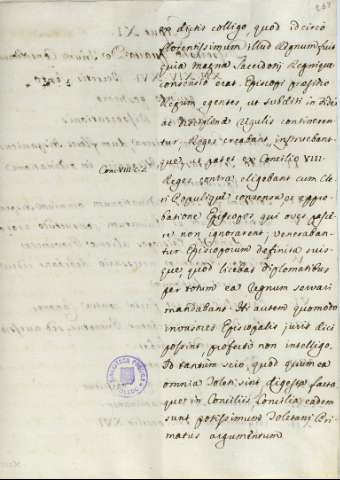 ex dictis colligo, quod idcirco
florentissimum illud Regnum fuit
quia magna Sacerdotii Regnique
concordia erat. Episcopi præsidio
Regum egentes, ut subditi in fide
ac Regulis continerentur
Reges creabant, instruebant-
que, ut patet ex Concilio VIII.
Conc. VIII. c. 2.
Reges contra eligebant cum Cle-
ri Populique consensu ac appro-
batione Episcopos, qui oves pasce-
re non ignorarent; veneraban-
tur Episcoporum definita suis-
que quod licebat diplomatibus
per totum ea Regnum servari
mandabant. Hi autem quomodo
invasores Episcopalis juris dici
possint, profecto non intelligo.
Id tantum scio, quod quum ea
omnia Toleti sint digesta facta-
que in Conciliis Concilia eadem
sunt potissimum Toletani Pri-
matus argumentum.
BIBLIOTECA PUBLICA
TOLEDO